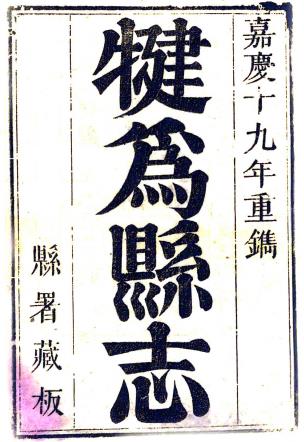 嘉慶十九年重鐫
犍爲縣志
縣署藏板